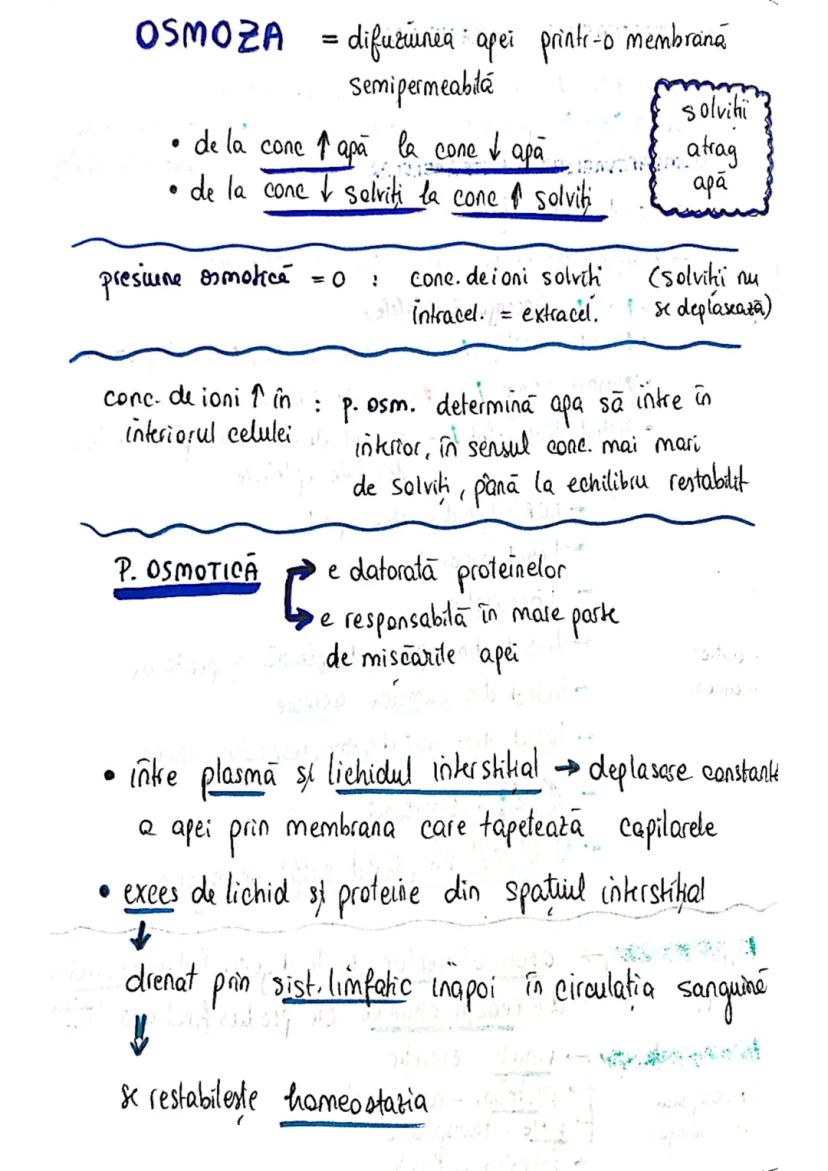 OSMOZA = difuziunea apei printr-o membrană
semipermeabilă
solviții
atrag
apă
• de la conc ↑ apă la conc ↓ apă
• de la conc ↓ solviți la conc ↑ solviți
presiune osmotică = 0 : conc. de ioni solviți (solviții nu
intracel. = extracel. se deplasează)
conc. de ioni ↑ în : p. osm. determină apa să intre în
interiorul celulei interior, în sensul conc. mai mari
de solviți, până la echilibru restabilit
P. OSMOTICĂ → e datorată proteinelor
→ e responsabilă în mare parte
de mișcările apei
• între plasmă și lichidul interstițial → deplasare constantă
a apei prin membrana care tapetează capilarele
• exces de lichid și proteine din spațiul interstițial
↓
drenat prin sist. limfatic înapoi în circulația sanguină
⇓
se restabilește homeostazia